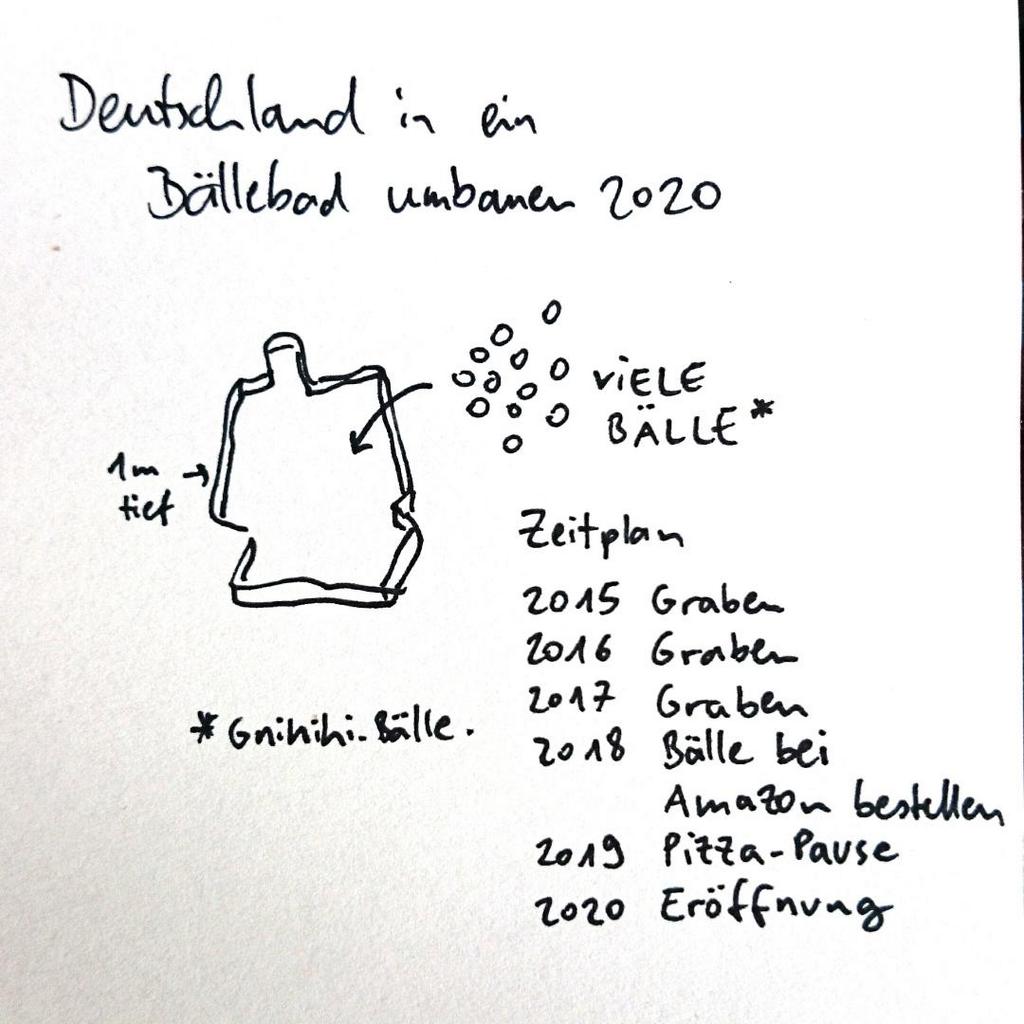 Deutschland in ein
Bällebad umbauen 2020
VIELE
BÄLLE*
1m
tief
Zeitplan
2015 Graben
2016 Graben
2017 Graben
2018 Bälle bei
Amazon bestellen
2019 Pizza-Pause
2020 Eröffnung
* Gnihihi-Bälle.